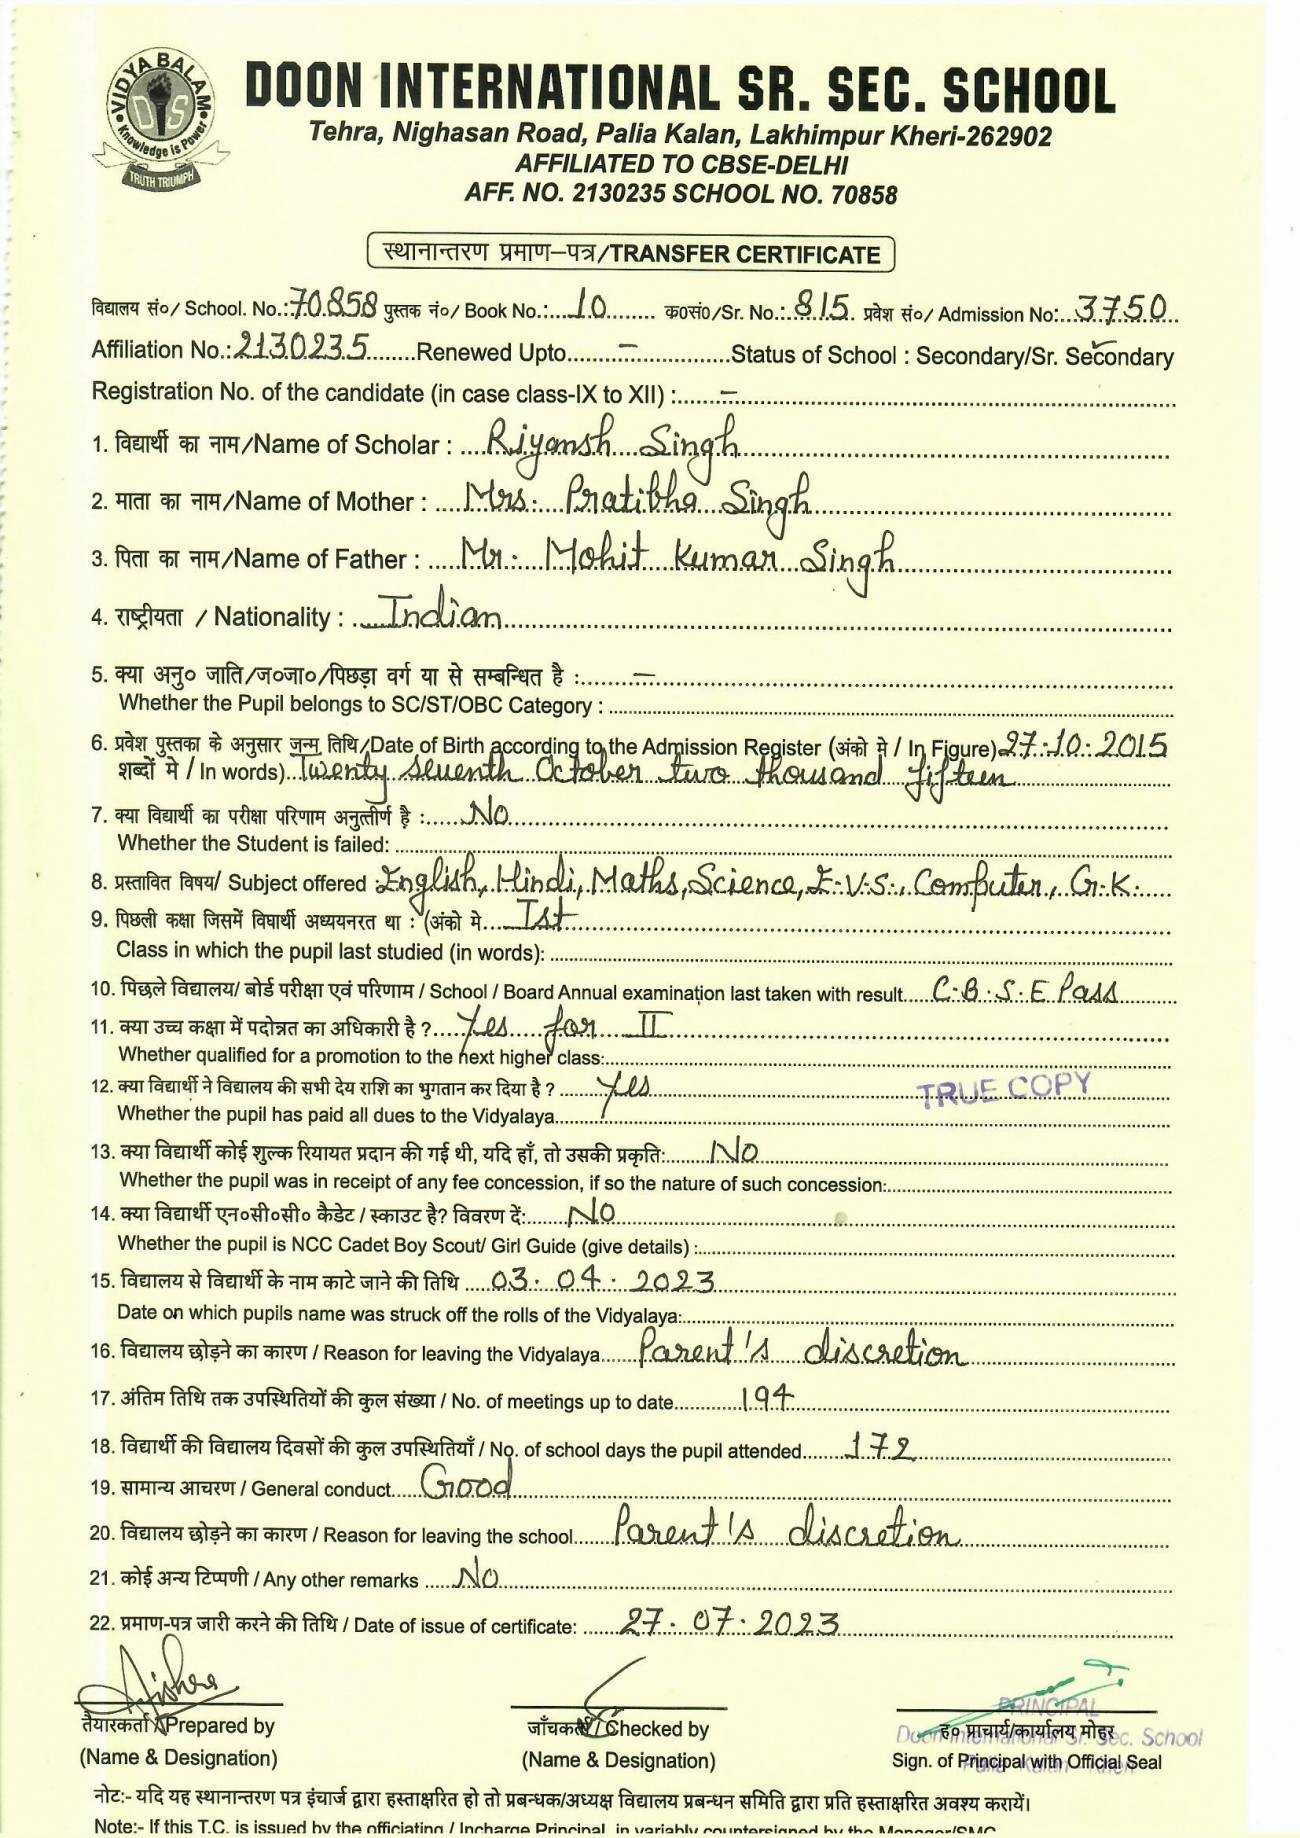 VIDYA BALAM
DIS
Knowledge is Power
TRUTH TRIUMPH
DOON INTERNATIONAL SR. SEC. SCHOOL
Tehra, Nighasan Road, Palia Kalan, Lakhimpur Kheri-262902
AFFILIATED TO CBSE-DELHI
AFF. NO. 2130235 SCHOOL NO. 70858
स्थानान्तरण प्रमाण–पत्र/TRANSFER CERTIFICATE
विद्यालय सं०/ School. No.:70858 पुस्तक नं०/ Book No.:...10........ क0सं0/Sr. No.:.815. प्रवेश सं०/ Admission No:..3750..
Affiliation No.:2130235.......Renewed Upto.......–..............Status of School : Secondary/Sr. Secondary
Registration No. of the candidate (in case class-IX to XII) :.....–.....
1. विद्यार्थी का नाम/Name of Scholar : ....Riyansh Singh.....
2. माता का नाम/Name of Mother : ....Mrs. Pratibha Singh.....
3. पिता का नाम/Name of Father : ....Mr. Mohit Kumar Singh.....
4. राष्ट्रीयता / Nationality : ....Indian.....
5. क्या अनु० जाति/ज०जा०/पिछड़ा वर्ग या से सम्बन्धित है :.......–.....
Whether the Pupil belongs to SC/ST/OBC Category : .....
6. प्रवेश पुस्तका के अनुसार जन्म तिथि/Date of Birth according to the Admission Register (अंको मे / In Figure) 27.10.2015
शब्दों मे / In words)..Twenty seventh October two thousand fifteen
7. क्या विद्यार्थी का परीक्षा परिणाम अनुत्तीर्ण है :.....No.....
Whether the Student is failed: .....
8. प्रस्तावित विषय/ Subject offered English, Hindi, Maths, Science, E.V.S., Computer, G.K.....
9. पिछली कक्षा जिसमें विघार्थी अध्ययनरत था : (अंको मे....Ist.....
Class in which the pupil last studied (in words): .....
10. पिछले विद्यालय/ बोर्ड परीक्षा एवं परिणाम / School / Board Annual examination last taken with result....C.B.S.E Pass.....
11. क्या उच्च कक्षा में पदोन्नत का अधिकारी है ?....Yes for II.....
Whether qualified for a promotion to the next higher class:.....
12. क्या विद्यार्थी ने विद्यालय की सभी देय राशि का भुगतान कर दिया है ? .....Yes.....
TRUE COPY
Whether the pupil has paid all dues to the Vidyalaya.....
13. क्या विद्यार्थी कोई शुल्क रियायत प्रदान की गई थी, यदि हाँ, तो उसकी प्रकृति:.....No.....
Whether the pupil was in receipt of any fee concession, if so the nature of such concession:.....
14. क्या विद्यार्थी एन०सी०सी० कैडेट / स्काउट है? विवरण दें:.....No.....
Whether the pupil is NCC Cadet Boy Scout/ Girl Guide (give details) :.....
15. विद्यालय से विद्यार्थी के नाम काटे जाने की तिथि ....03.04.2023.....
Date on which pupils name was struck off the rolls of the Vidyalaya:.....
16. विद्यालय छोड़ने का कारण / Reason for leaving the Vidyalaya.....Parent's discretion.....
17. अंतिम तिथि तक उपस्थितियों की कुल संख्या / No. of meetings up to date.....194.....
18. विद्यार्थी की विद्यालय दिवसों की कुल उपस्थितियाँ / No. of school days the pupil attended.....172.....
19. सामान्य आचरण / General conduct.....Good.....
20. विद्यालय छोड़ने का कारण / Reason for leaving the school.....Parent's discretion.....
21. कोई अन्य टिप्पणी / Any other remarks .....No.....
22. प्रमाण-पत्र जारी करने की तिथि / Date of issue of certificate: .....27.07.2023.....
PRINCIPAL
तैयारकर्ता / Prepared by जाँचकर्ता / Checked by ह० प्राचार्य/कार्यालय मोहर
Doon International Sr. Sec. School
(Name & Designation) (Name & Designation) Sign. of Principal with Official Seal
Palia Kalan - Kheri
नोट:- यदि यह स्थानान्तरण पत्र इंचार्ज द्वारा हस्ताक्षरित हो तो प्रबन्धक/अध्यक्ष विद्यालय प्रबन्धन समिति द्वारा प्रति हस्ताक्षरित अवश्य करायें।
Note:- If this T.C. is issued by the officiating / Incharge Principal, in variably countersigned by the Manager/SMC